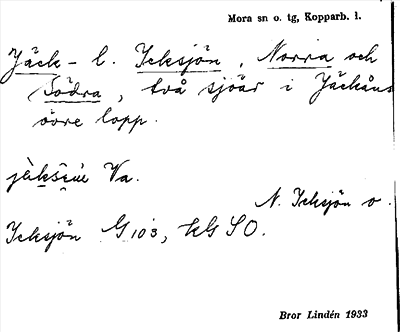 Mora sn o. tg, Kopparb. l.
Jäck- l. Icksjön, Norra och
Södra, två sjöar i Jäckåns
övre lopp.
Va.
N. Icksjön o.
Icksjön G 103, kG SO.
Bror Lindén 1933